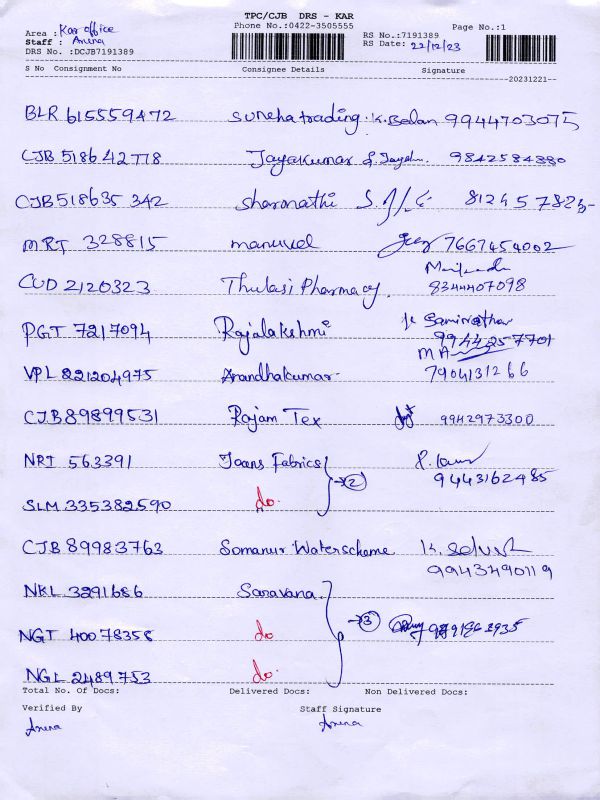 TPC/CJB DRS - KAR
Phone No.:0422-3505555
Page No.:1
Area : Kar office
Staff : Anena
DRS No. :DCJB7191389
RS No.:7191389
RS Date: 22/12/23
S No Consignment No Consignee Details Signature
20231221--
BLR 615559472 Suneha trading K. Balan 9944703075
CJB 518642778 Jayakumar 9842584380
CJB 518635 342 Sharanathi
MRT 328815 manuvel 7667454002
CUD 2120323 Thulasi Pharmacy. 8344407098
PGT 7217094 Rajalakshmi 9944257701
VPL 221204975 Anandhakumar 7904131266
CJB 89899531 Rajam Tex 9942973300
NRI 563391 Joans Fabrics →② 9443162485
SLM 335382590 do.
CJB 89983763 Somanur Waterscheme K. Selva 9943490119
NKL 3291686 Saravana.
NGT 40078358 do →③
NGL 2489753 do.
Total No. Of Docs: Delivered Docs: Non Delivered Docs:
Verified By Staff Signature
Anena Anena